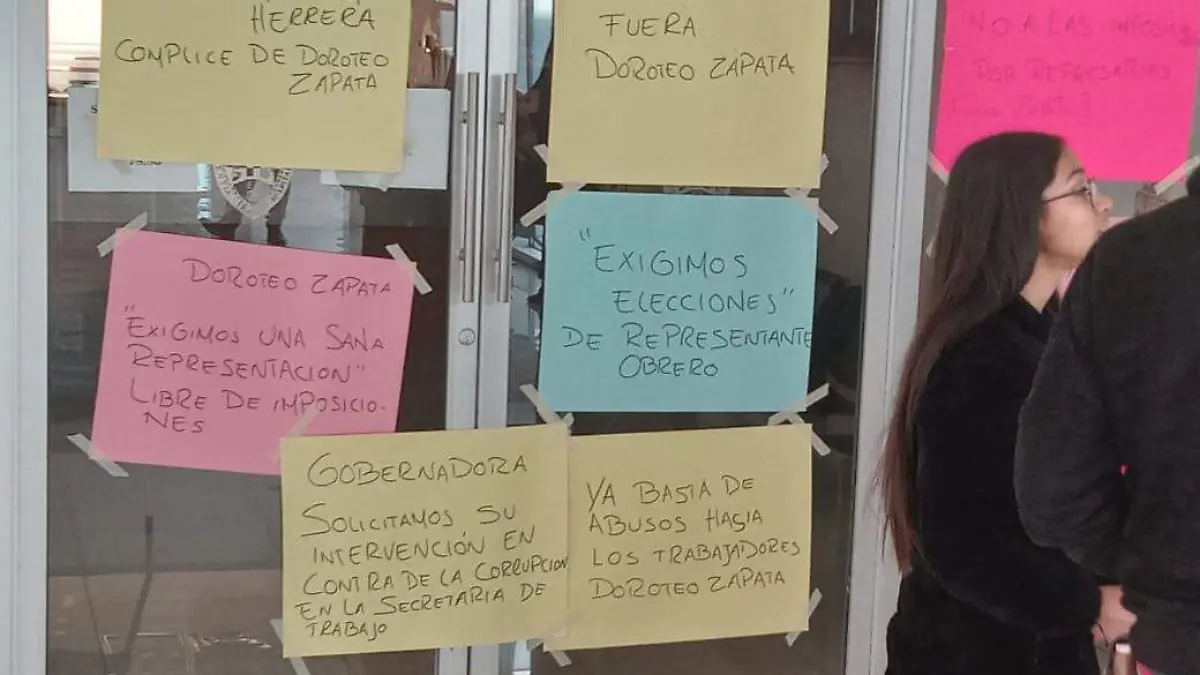 HERRERA
COMPLICE DE DOROTEO
ZAPATA
FUERA
DOROTEO ZAPATA
NO A LAS
POR REPRESARIAS
DOROTEO ZAPATA
"EXIGIMOS UNA SANA
REPRESENTACION"
LIBRE DE IMPOSICIO-
NES
"EXIGIMOS
ELECCIONES"
DE REPRESENTANTE
OBRERO
GOBERNADORA
SOLICITAMOS SU
INTERVENCIÓN EN
CONTRA DE LA CORRUPCION
EN LA SECRETARIA DE
TRABAJO
YA BASTA DE
ABUSOS HASIA
LOS TRABAJADORES
DOROTEO ZAPATA